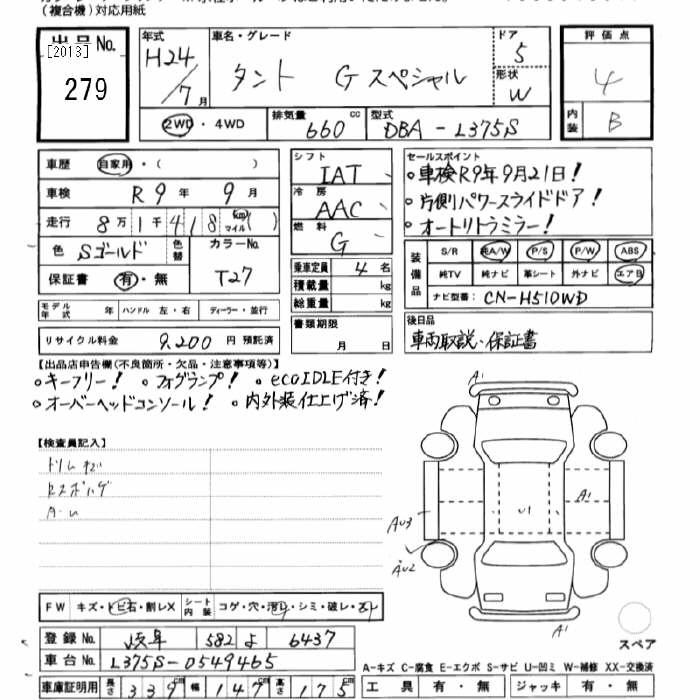 (複合機)対応用紙
出品No.
[2013]
279
年式
H24/7月
車名・グレード
タント Gスペシャル
ドア
5
形状
W
評価点
4
内装
B
2WD・4WD
排気量
660 cc
型式
DBA-L375S
車歴 自家用・( )
車検 R9年9月
走行 8万1千418 km マイル ( )
色 Sゴールド
色替
カラーNo.
T27
保証書 有・無
モデル年式 年 ハンドル 左・右 ディーラー・並行
リサイクル料金 9,200円 預託済
シフト
IAT
冷房
AAC
燃料
G
乗車定員 4名
積載量 kg
総重量 kg
書類期限
月 日
セールスポイント
・車検R9年9月21日!
・片側パワースライドドア!
・オートリトラミラー!
装備品
S/R 純A/W P/S P/W ABS
純TV 純ナビ 革シート 外ナビ エアB
ナビ型番: CN-H510WD
後日品
車両取説・保証書
【出品店申告欄(不良箇所・欠品・注意事項等)】
・キーフリー! ・フォグランプ! ・ecoIDLE付き!
・オーバーヘッドコンソール! ・内外装仕上げ済!
【検査員記入】
A1
A1
U1
AU3
AU2
A1
FW キズ・トビ石・割レX
シート内装 コゲ・穴・汚レ・シミ・破レ・スレ
登録No. 岐阜 582 よ 6437
車台No. L375S-0549465
車庫証明用 長さ 339cm 幅 147cm 高さ 175cm
スペア
A-キズ C-腐食 E-エクボ S-サビ U-凹ミ W-補修 XX-交換済
工具 有・無 ジャッキ 有・無